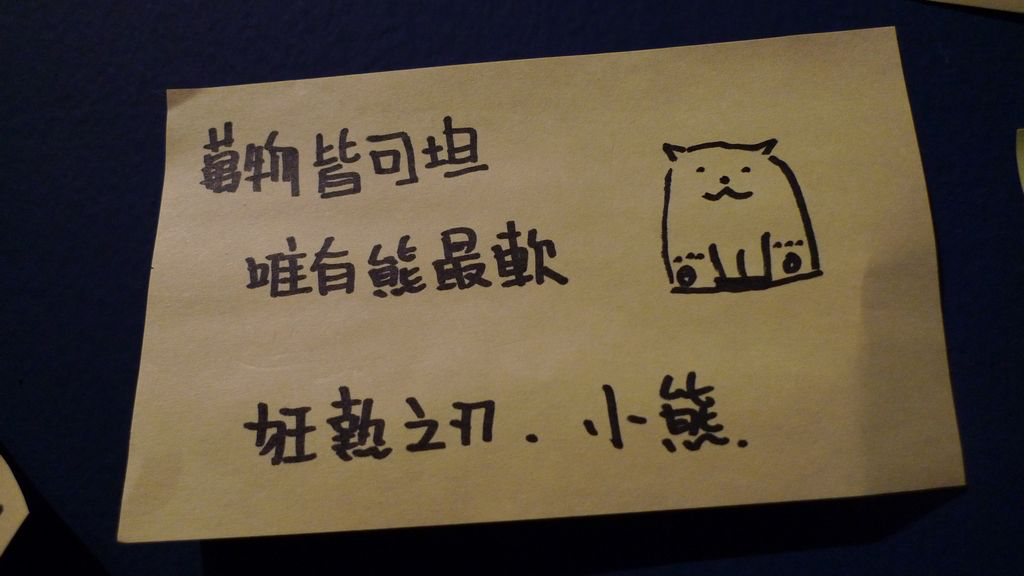 萬物皆可坦
唯有熊最軟
狂熱之刃. 小熊.